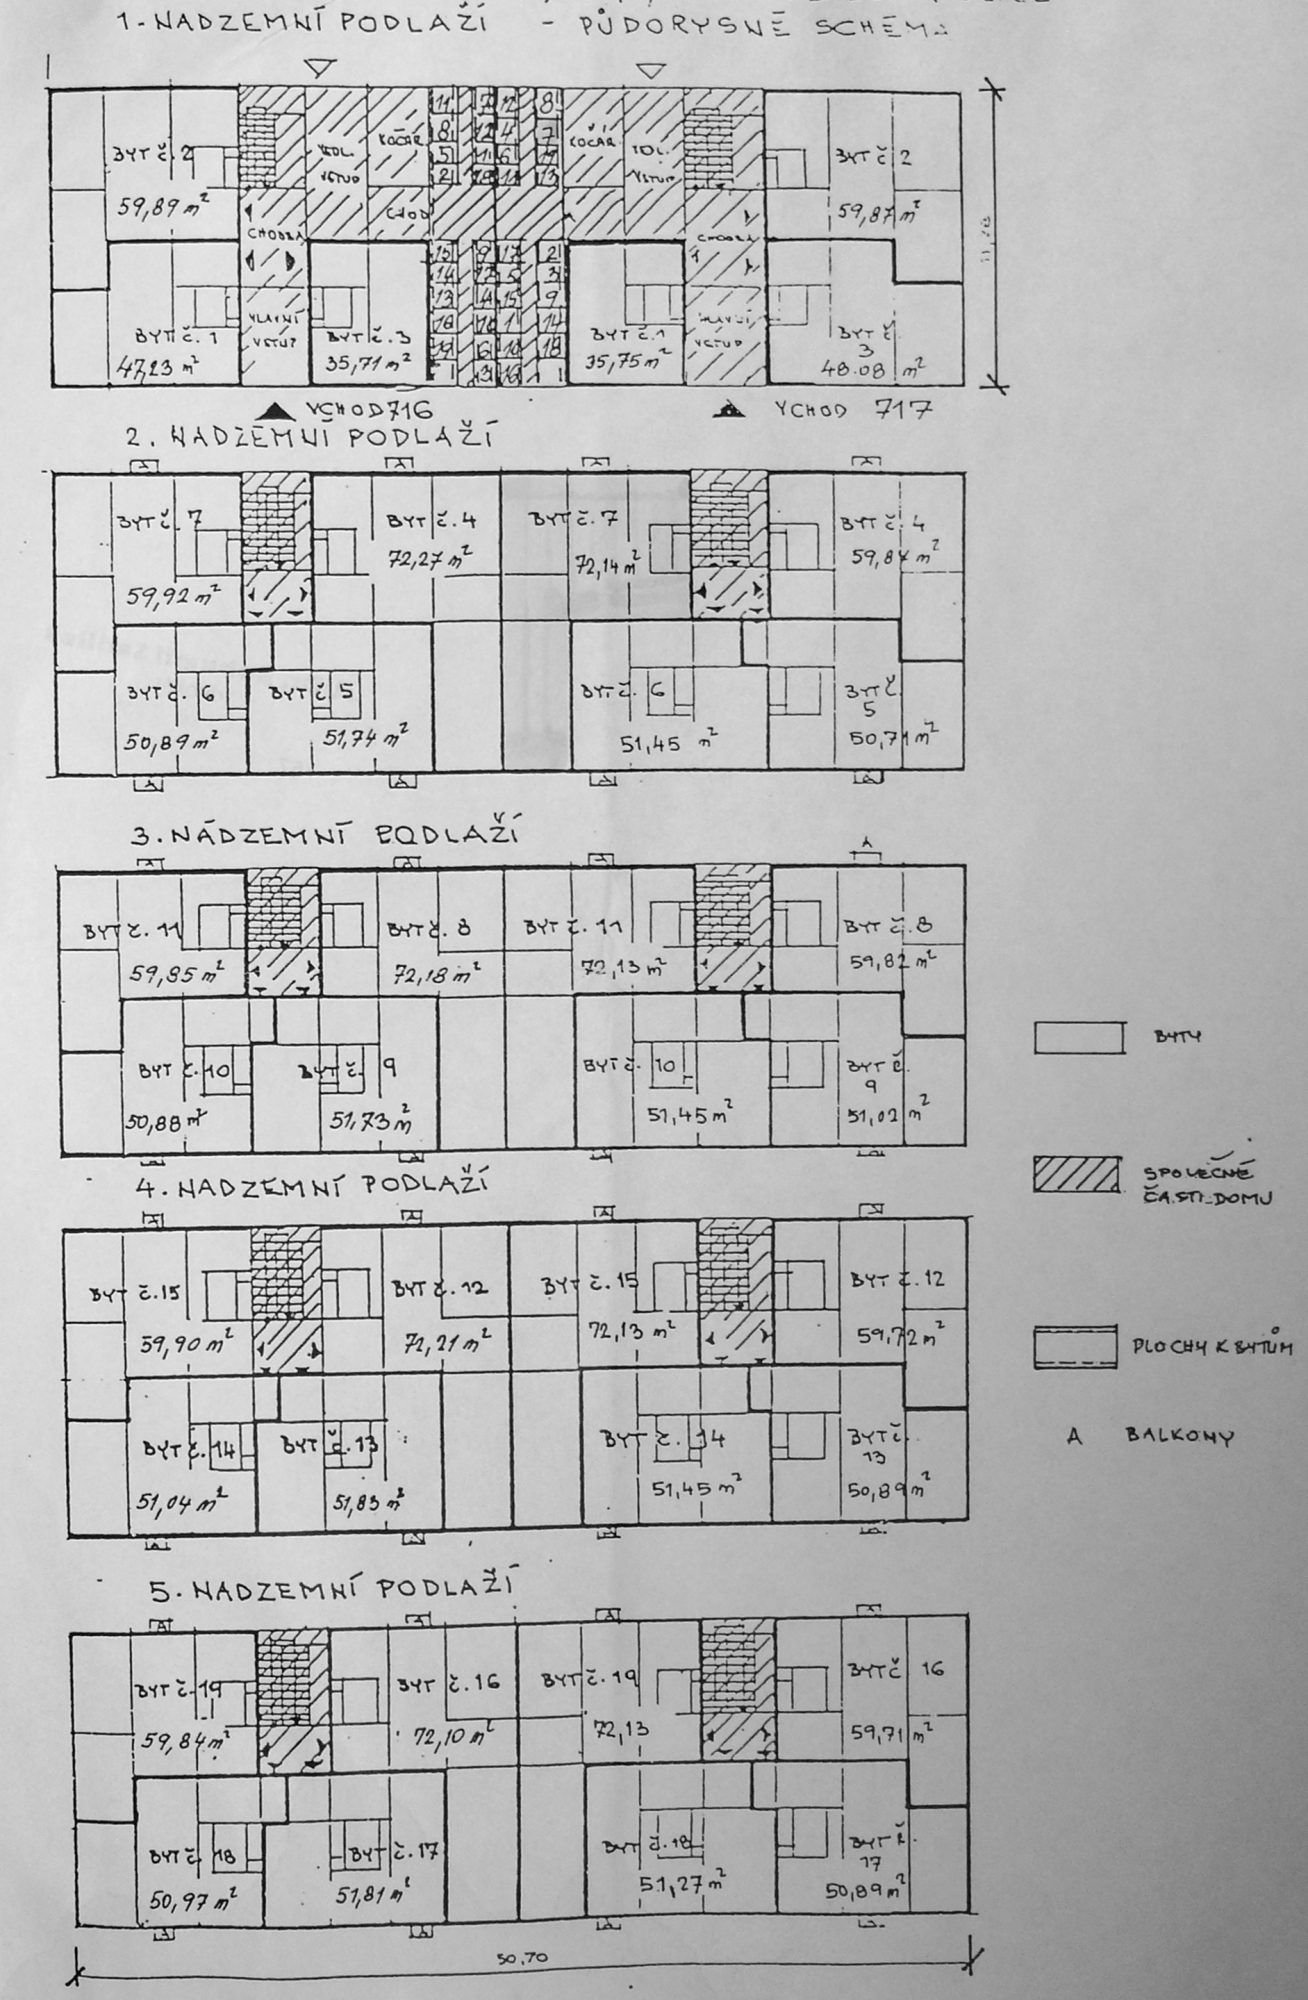 1. NADZEMNÍ PODLAŽÍ - PŮDORYSNÉ SCHÉMA
BYT č. 2
59,89 m²
VEDL. VSTUP
KOČÁR
CHOD
11 7 12 8
8 12 4 7
5 11 6 19
KOČÁR
VEDL. VSTUP
BYT č 2
59,87 m²
CHODBA
CHODBA
BYT č. 1
47,23 m²
HLAVNÍ VSTUP
BYT č. 3
35,71 m²
15 9 17 2
14 17 5 3
13 4 15 9
BYT č. 1
35,75 m²
HLAVNÍ VSTUP
BYT č
3
48.08 m²
VCHOD 716
VCHOD 717
2. NADZEMNÍ PODLAŽÍ
A A A A
BYT č. 7
59,92 m²
BYT č. 4
72,27 m²
BYT č. 7
72,14 m²
BYT č. 4
59,84 m²
BYT č. 6
50,89 m²
BYT č 5
51,74 m²
BYT č. 6
51,45 m²
BYT č.
5
50,71 m²
A A A A
3. NADZEMNÍ PODLAŽÍ
A A A A
BYT č. 11
59,85 m²
BYT č. 8
72,18 m²
BYT č. 11
72,13 m²
BYT č. 8
59,82 m²
BYT č. 10
50,88 m²
BYT č. 9
51,73 m²
BYT č. 10
51,45 m²
BYT č.
9
51,02 m²
BYTY
SPOLEČNÉ
ČÁSTI DOMU
PLOCHY K BYTŮM
A BALKONY
4. NADZEMNÍ PODLAŽÍ
A A A A
BYT č. 15
59,90 m²
BYT č. 12
72,21 m²
BYT č. 15
72,13 m²
BYT č. 12
59,72 m²
BYT č. 14
51,04 m²
BYT č. 13
51,83 m²
BYT č. 14
51,45 m²
BYT č.
13
50,89 m²
5. NADZEMNÍ PODLAŽÍ
A A A A
BYT č. 19
59,84 m²
BYT č. 16
72,10 m²
BYT č. 19
72,13
BYT č 16
59,71 m²
BYT č 18
50,97 m²
BYT č. 17
51,81 m²
BYT č. 18
51,27 m²
BYT č
17
50,89 m²
A A A
50,70